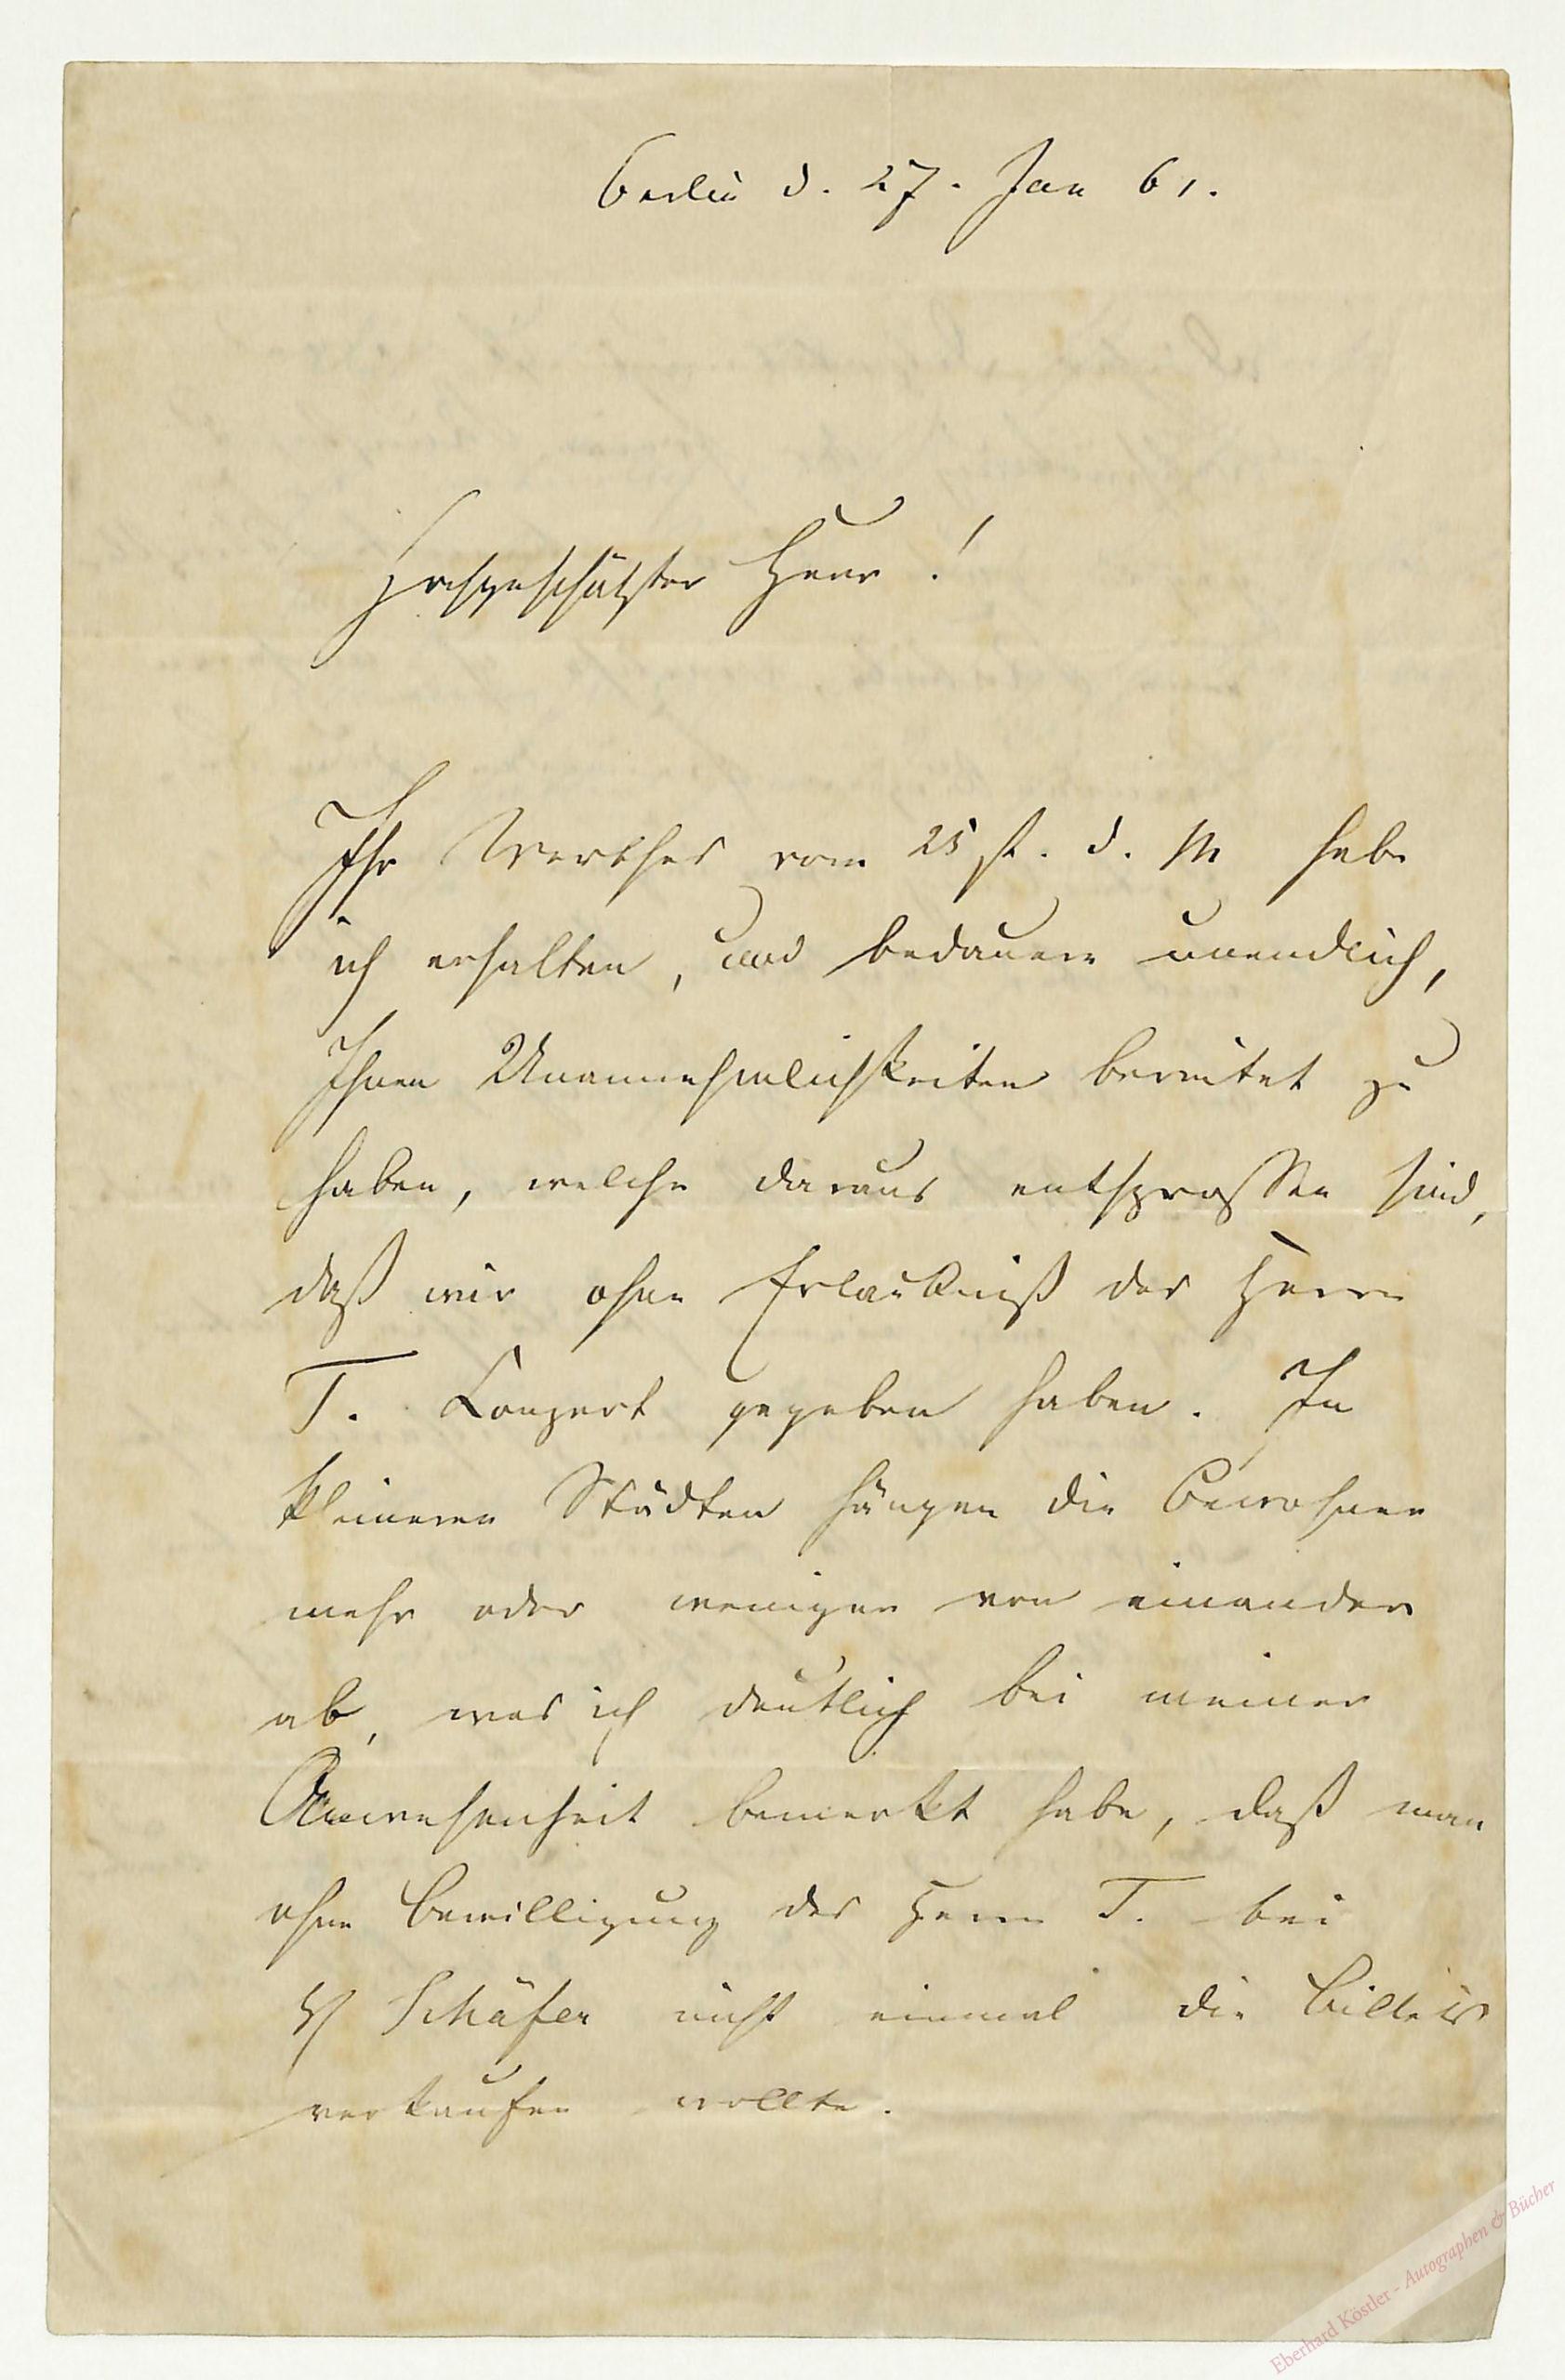 Berlin d. 27. Jan 61.
Hochgeschätzter Herr!
Ihr Werthes vom 25st. d. M habe
ich erhalten, und bedauere unendlich,
Ihnen Unannehmlichkeiten bereitet zu
haben, welche daraus entsprossen sind,
daß wir ohne Erlaubniß des Herrn
T. Konzert gegeben haben. In
kleineren Städten hängen die Bewohner
mehr oder weniger von einander
ab, was ich deutlich bei meiner
Anwesenheit bemerkt habe, daß man
ohne Bewilligung des Herrn T. bei
Schäfer nicht einmal die Billets
verkaufen wollte.
Eberhard Köstler - Autographen & Bücher